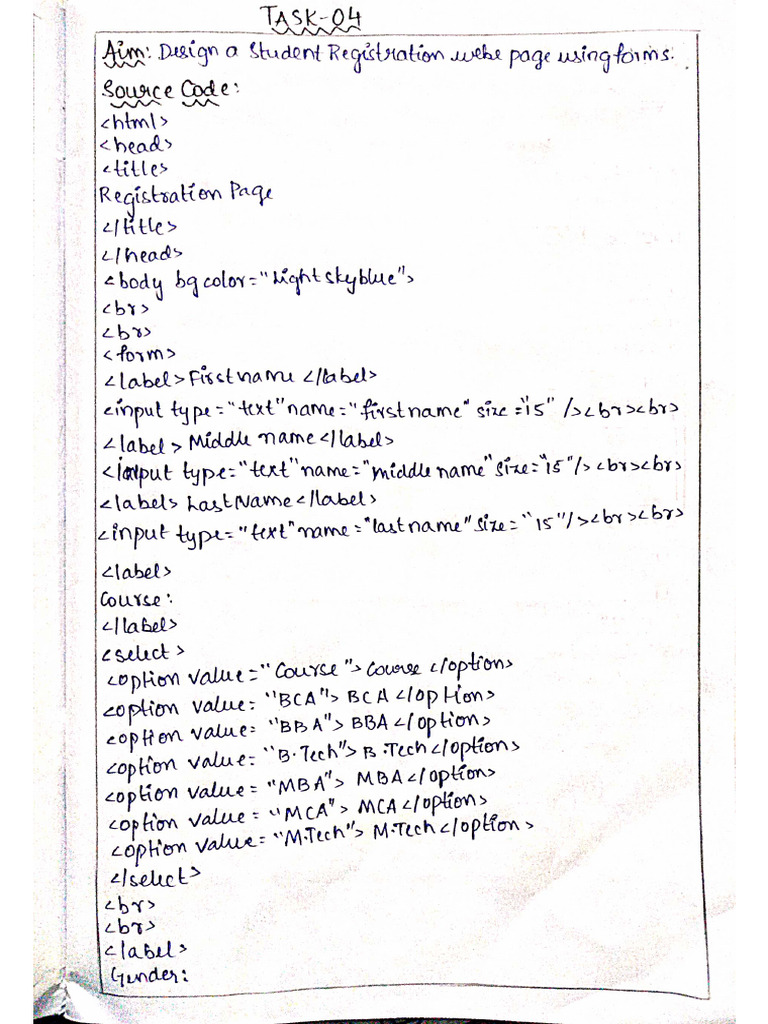 TASK-04
Aim: Design a Student Registration webe page using forms.
Source Code:
<html>
<head>
<title>
Registration Page
</title>
</head>
<body bgcolor="Lightskyblue">
<br>
<br>
<form>
<label>Firstname </label>
<input type="text" name="firstname" size="15" /><br><br>
<label> Middle name </label>
<input type="text" name="middle name" size="15"/><br><br>
<label> Last Name </label>
<input type="text" name="lastname" size="15"/><br><br>
<label>
Course:
</label>
<select>
<option value="Course"> Course </option>
<option value="BCA"> BCA </option>
<option value="BBA"> BBA </option>
<option value="B.Tech"> B.Tech </option>
<option value="MBA"> MBA </option>
<option value="MCA"> MCA </option>
<option value="M.Tech"> M.Tech </option>
</select>
<br>
<br>
<label>
Gender: